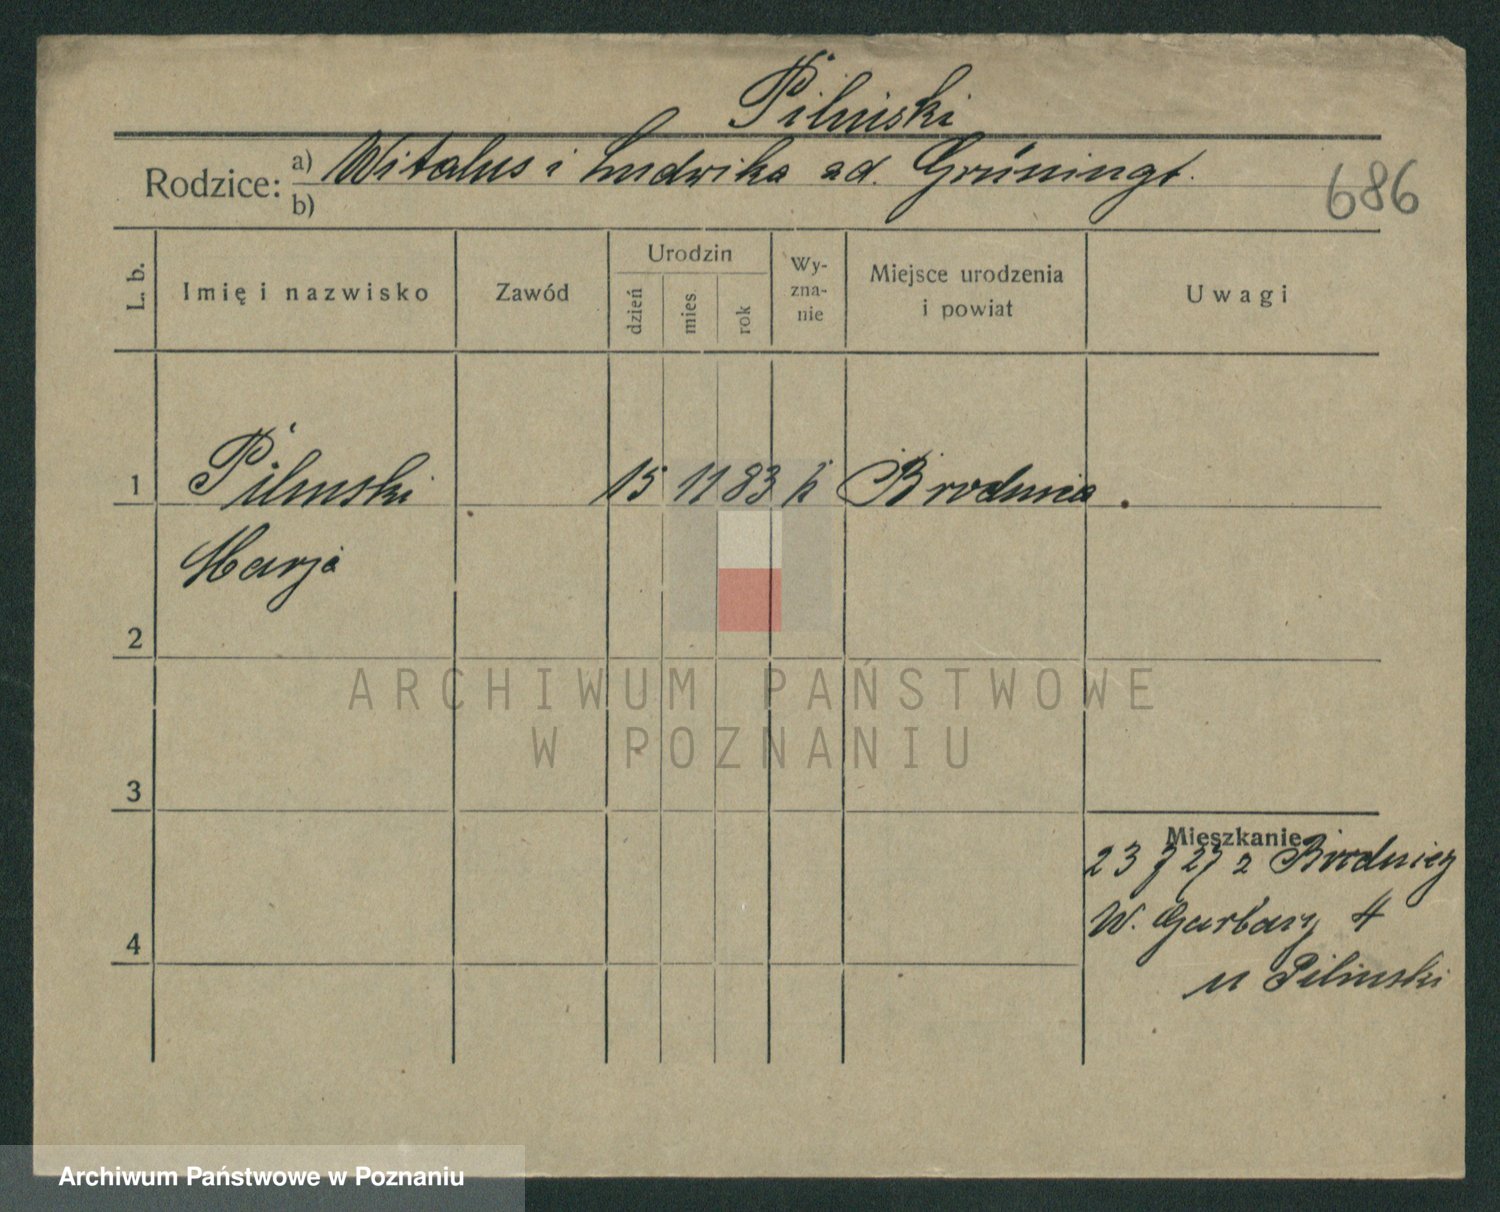 Pilinski
Rodzice: a) Witalus i Ludwika ad. Grüningt.
b)
686
L. b.
Imię i nazwisko
Zawód
Urodzin
dzień
mies
rok
Wy-
zna-
nie
Miejsce urodzenia
i powiat
Uwagi
1 Pilinski 15 11 83 k Brodnica
Marja
2
ARCHIWUM PAŃSTWOWE
W POZNANIU
3
Mieszkanie
23 7 27 z Brodnicy
4 W. Garbary 4
u Pilinski
Archiwum Państwowe w Poznaniu